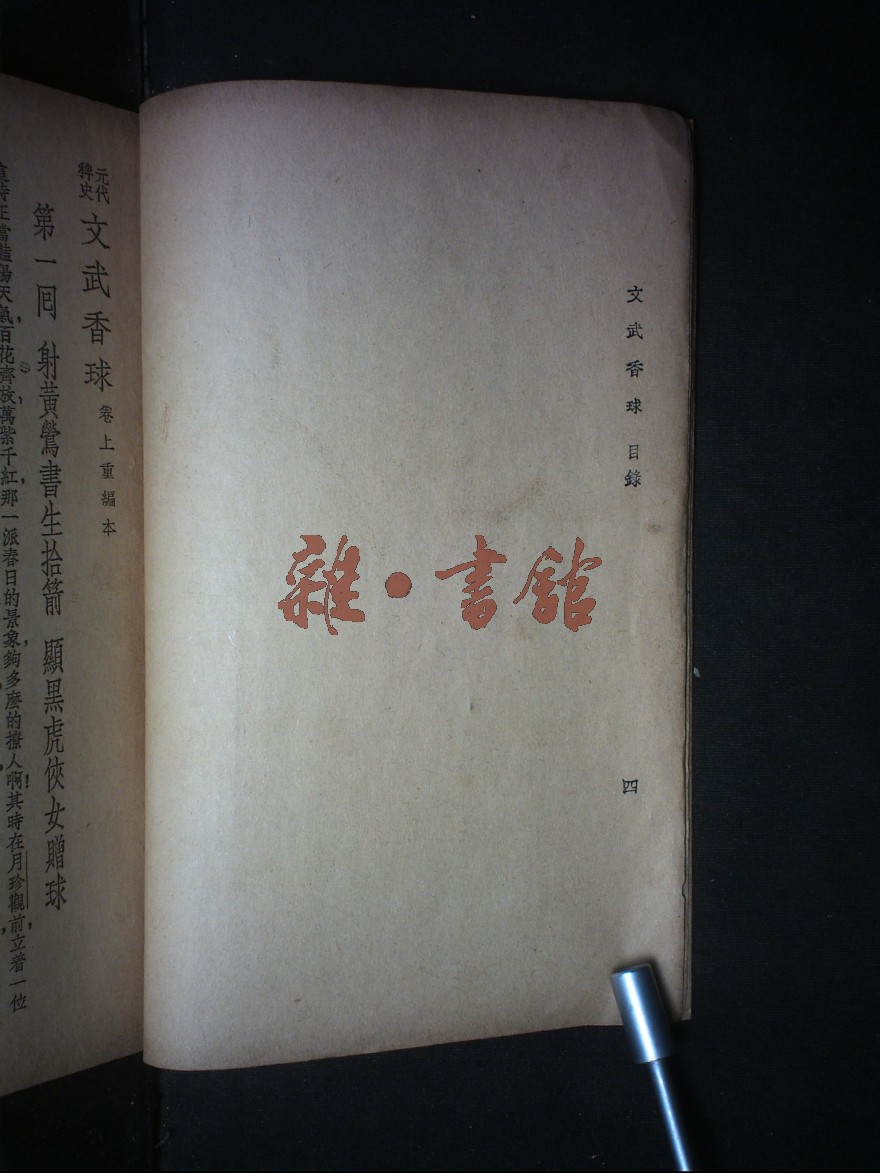 文武香球 目錄
四
雜·書館
元代稗史 文武香球 卷上重編本
第一囘 射黃鶯書生拾箭 顯黑虎俠女贈球
陽天氣，百花齊放，萬紫千紅，那一派春日的景象，夠多麼的撩人啊！其時在月珍觀前，立着一位